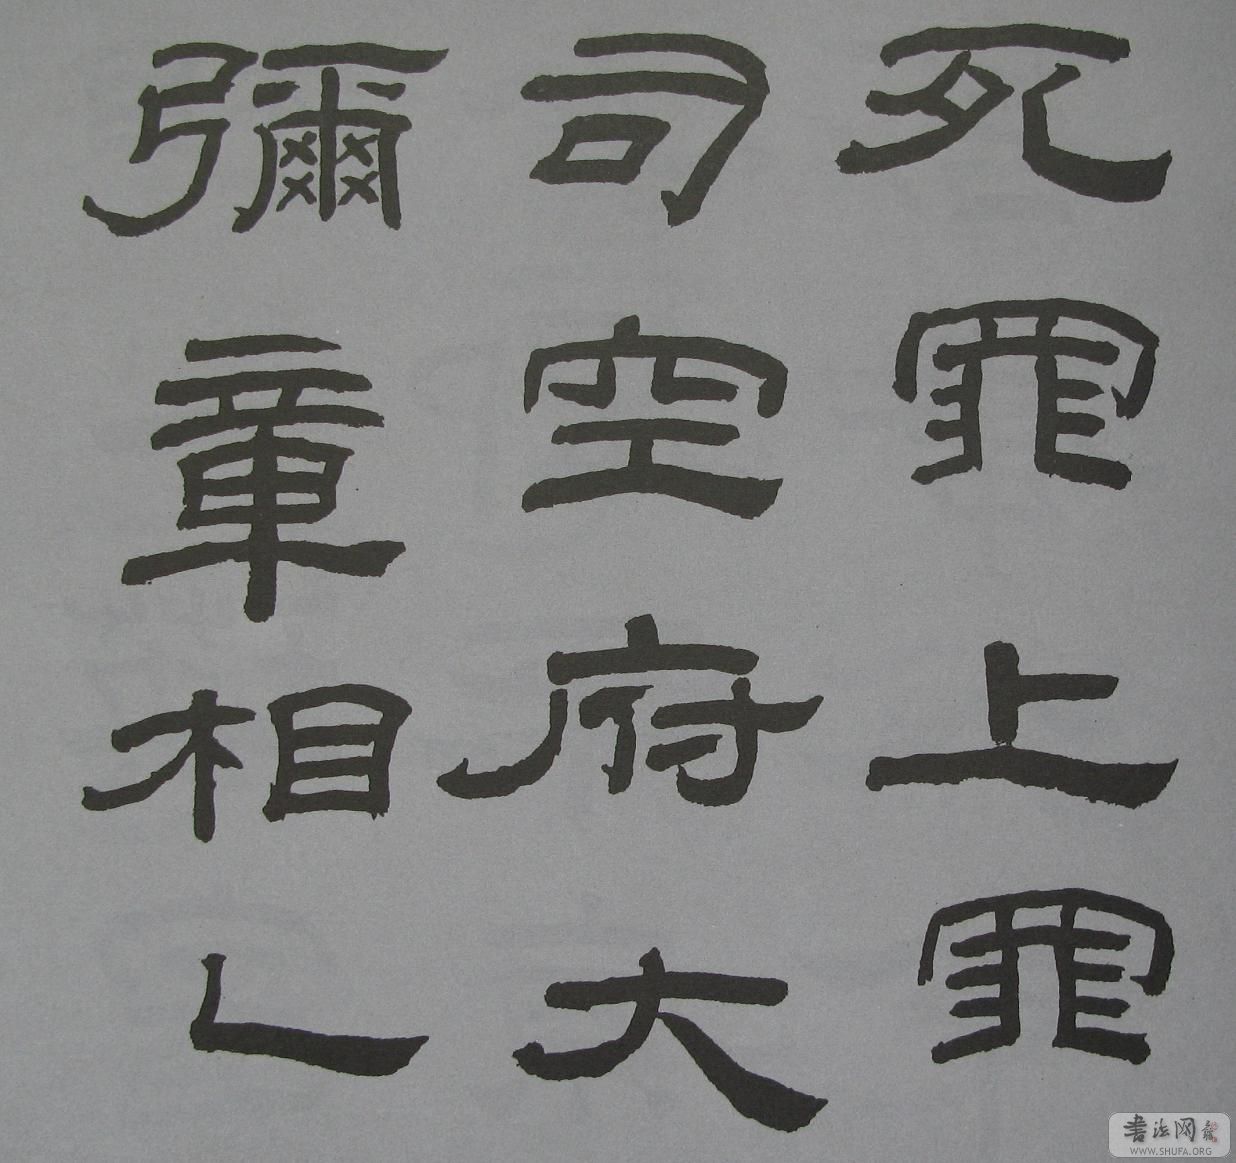 死罪上罪
司空府大
彌章相乚
書法网
WWW.SHUFA.ORG